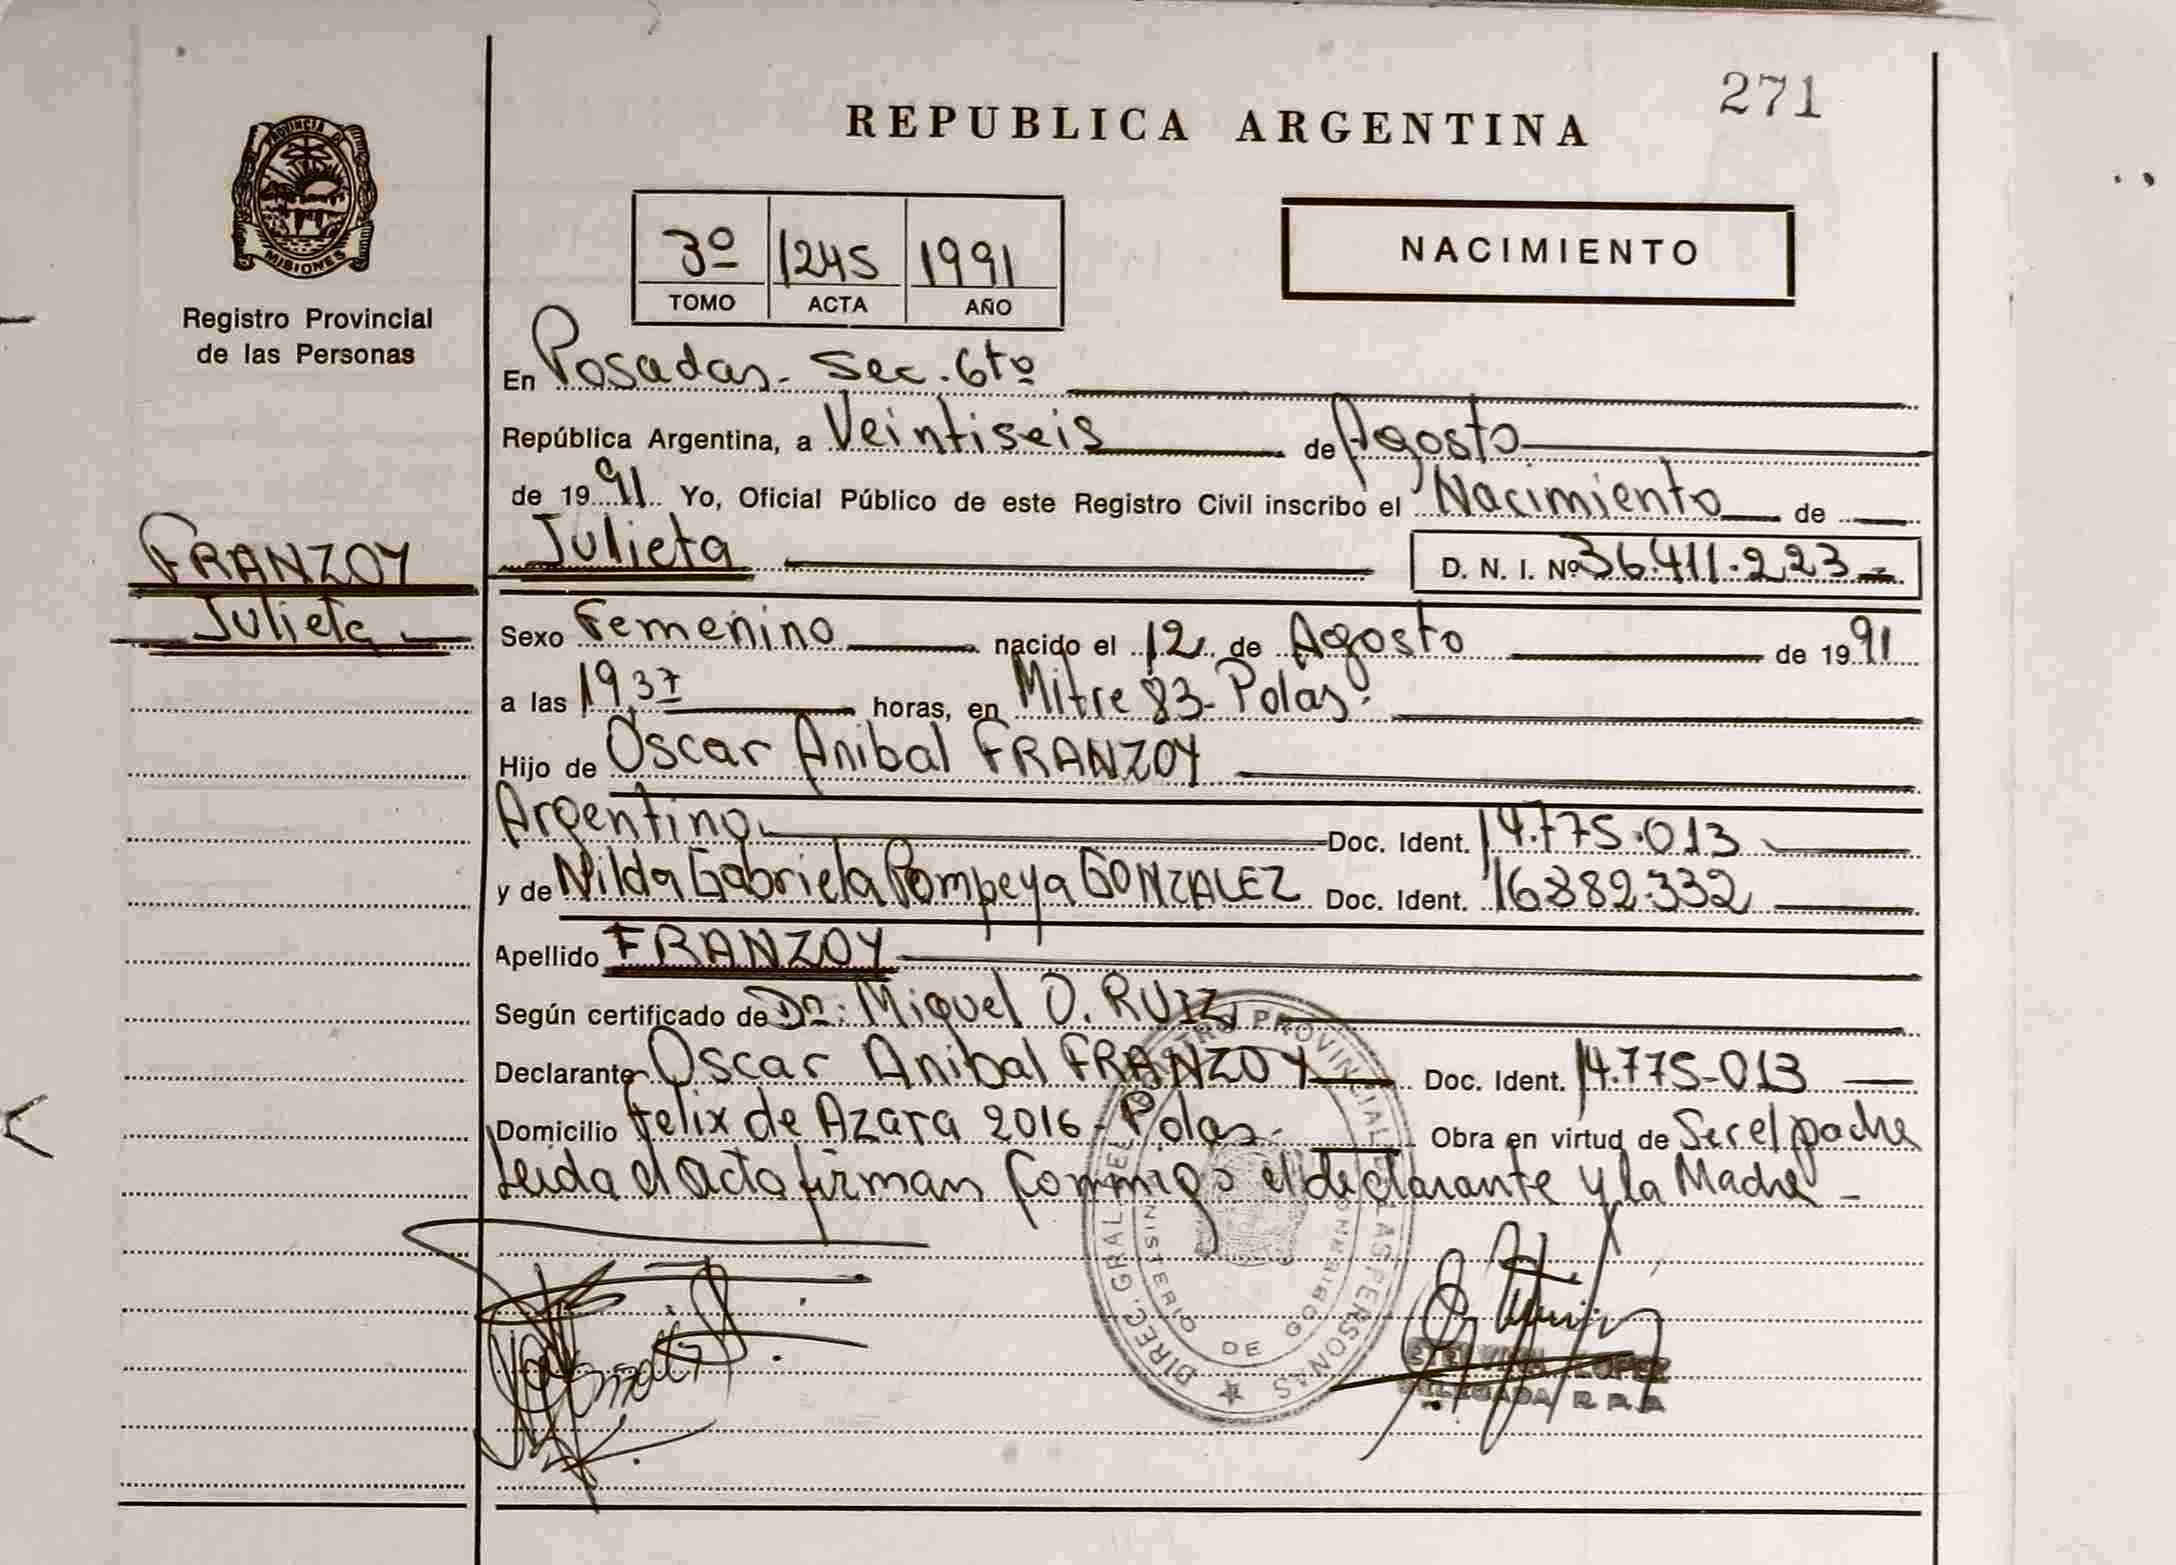 271
REPUBLICA ARGENTINA
PROVINCIA DE
MISIONES
Registro Provincial
de las Personas
3º 1245 1991
TOMO ACTA AÑO
NACIMIENTO
En Posadas. Sec. 6tº
República Argentina, a Veintiseis de Agosto
de 1991 Yo, Oficial Público de este Registro Civil inscribo el Nacimiento de
FRANZOY
Julieta
Julieta D. N. I. Nº 36.411.223
Sexo Femenino nacido el 12 de Agosto de 1991
a las 19,37 horas, en Mitre 83- Pdas.
Hijo de Oscar Anibal FRANZOY
Argentino. Doc. Ident. 14.775.013
y de Nilda Gabriela Pompeya GONZALEZ Doc. Ident. 16.882.332
Apellido FRANZOY
Según certificado de Dn: Miguel O. RUIZ
Declarante Oscar Anibal FRANZOY Doc. Ident. 14.775-013
Domicilio Felix de Azara 2016- Pdas- Obra en virtud de Ser el padre
Leida el acta firman conmigo el declarante y la Madre -
DIREC. GRAL. DEL REGISTRO PROVINCIAL DE LAS PERSONAS
MINISTERIO DE GOBIERNO
ETELVINA LOPEZ
DELEGADA R. P. P.